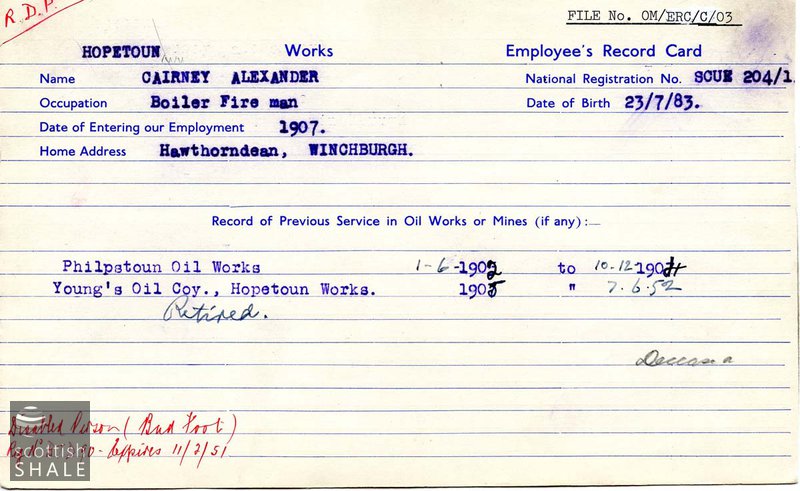 R.D.P.
FILE No. OM/ERC/C/03
HOPETOUN Works Employee's Record Card
Name CAIRNEY ALEXANDER National Registration No. SCUE 204/1
Occupation Boiler Fire man Date of Birth 23/7/83.
Date of Entering our Employment 1907.
Home Address Hawthorndean, WINCHBURGH.
Record of Previous Service in Oil Works or Mines (if any):—
Philpstoun Oil Works 1-6-1902 to 10-12-1904
Young's Oil Coy., Hopetoun Works. 1905 " 7.6.52
Retired.
Disabled Person (Bad Foot)
Expires 11/2/51
scottish
SHALE